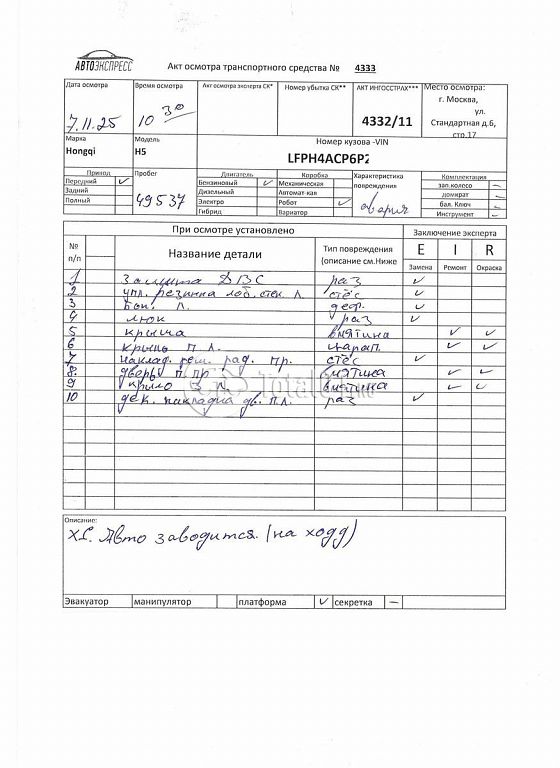 АВТОЭКСПРЕСС
Акт осмотра транспортного средства № 4333
Дата осмотра
7.11.25
Время осмотра
10 30
Акт осмотра эксперта СК*
Номер убытка СК**
АКТ ИНГОССТРАХ***
4332/11
Место осмотра:
г. Москва,
ул.
Стандартная д.6,
стр.17
Марка
Hongqi
Модель
H5
Номер кузова -VIN
LFPH4ACP6P2
Привод
Передний ✓
Задний
Полный
Пробег
49537
Двигатель
Бензиновый ✓
Дизельный
Электро
Гибрид
Коробка
Механическая
Автомат-кая
Робот ✓
Вариатор
Характеристика
повреждения
авария
Комплектация
зап.колесо –
домкрат –
бал. Ключ –
Инструмент –
При осмотре установлено
Заключение эксперта
№ п/п
Название детали
Тип повреждения
(описание см.Ниже
E I R
Замена Ремонт Окраска
1 Защита ДВС раз ✓
2 упл. резинка лоб. стек. л. стёс ✓
3 л. деф. ✓
4 люк раз ✓
5 крыша вмятина ✓ ✓
6 крыло п л. царап. ✓ ✓
7 наклад. реш. рад. пр. стёс ✓
8. дверь п. пр вмятина ✓ ✓
9 крыло з п. вмятина ✓ ✓
10 дек. накладка дв. п.л. раз ✓
Описание:
Авто заводится. (на ходу)
Эвакуатор манипулятор платформа ✓ секретка –